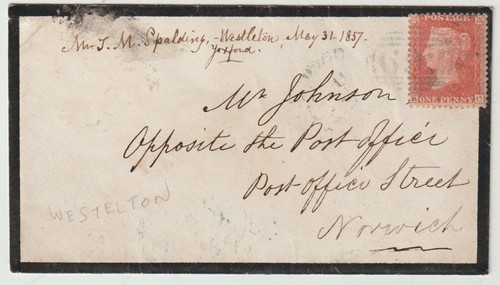 Mr J. M. Spalding, - Westleton, May 31 - 1857.
Yoxford.
POSTAGE
ONE PENNY
Mr Johnson
Opposite the Post Office
Post Office Street
Norwich
WESTELTON